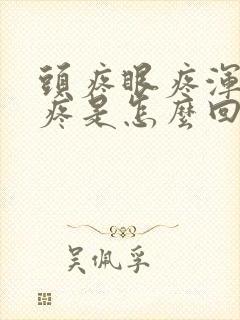 頭疼眼疼渾
疼是怎麼回
吴佩孚